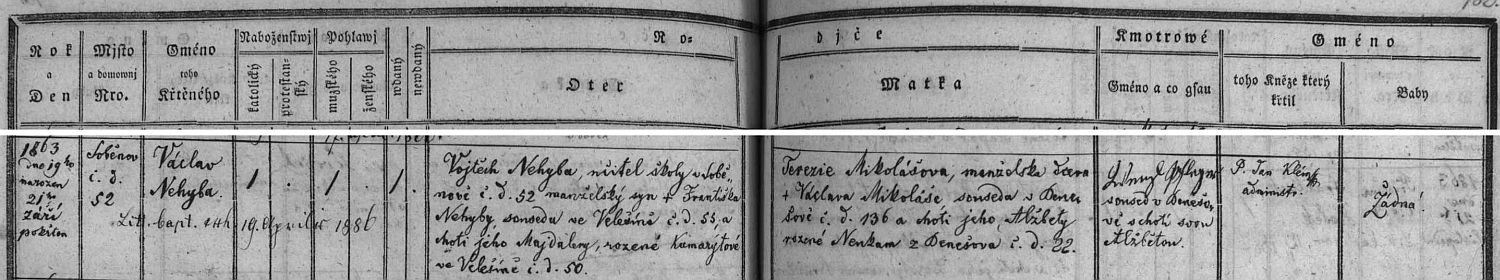 Rok a Den
Mjsto a domownj Nro.
Gméno toho Křtěného
Náboženstwj
katolický
protestanský
Pohlawj
mužského
ženského
wdaný
newdaný
Rodjče
Otec
Matka
Kmotrowé
Gméno a co gsau
Gméno
toho Kněze který křtil
Baby
1863
dne 19ho
narozen
21ho
září
pokřtěn
Soběnov
č. d.
52
Václav
Nehyba.
1 . 1 . 1 .
Litt. bapt. exh. 19. Aprilis 1886
Vojtěch Nehyba, učitel školy v Sobě-
nově č. d. 52 manželský syn + Františka
Nehyby, souseda ve Velešíně č. d. 55, a
choti jeho Majdaleny, rozené Kamarýtové
ve Velešíně č. d. 50.
Terezie Mikolášova, manželská dcera
+ Václava Mikoláše, souseda v Bene-
šově č. d. 136 a choti jeho, Alžběty
rozené Nenkam z Benešova č. d. 22.
Wenzl Pfleger
soused v Benešo-
vě s chotí svou
Alžbětou.
P. Jan
administr.
Žádná.